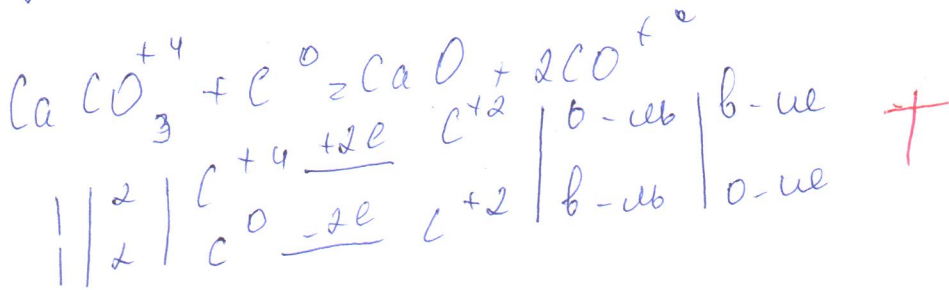 CaCO₃⁺⁴ + C⁰ = CaO + 2CO⁺²
1 || 2 | C⁺⁴ +2e C⁺² | о-ль | в-ие +
1 || 2 | C⁰ -2e C⁺² | в-ль | о-ие